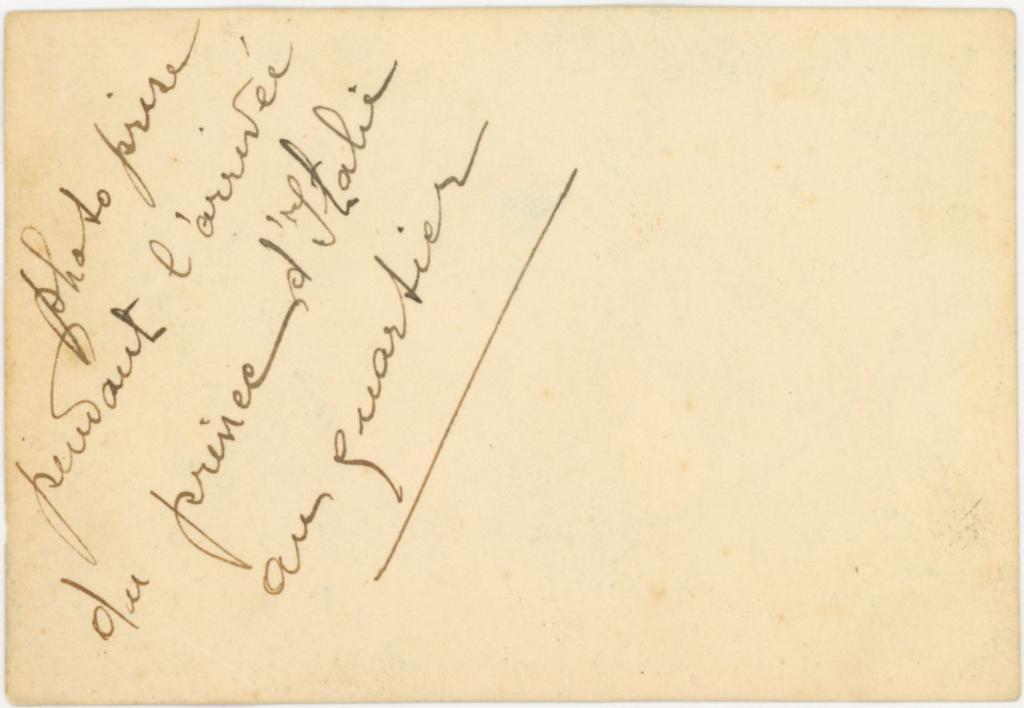 photo prise
pendant l'arrivée
du prince d'Italie
au quartier